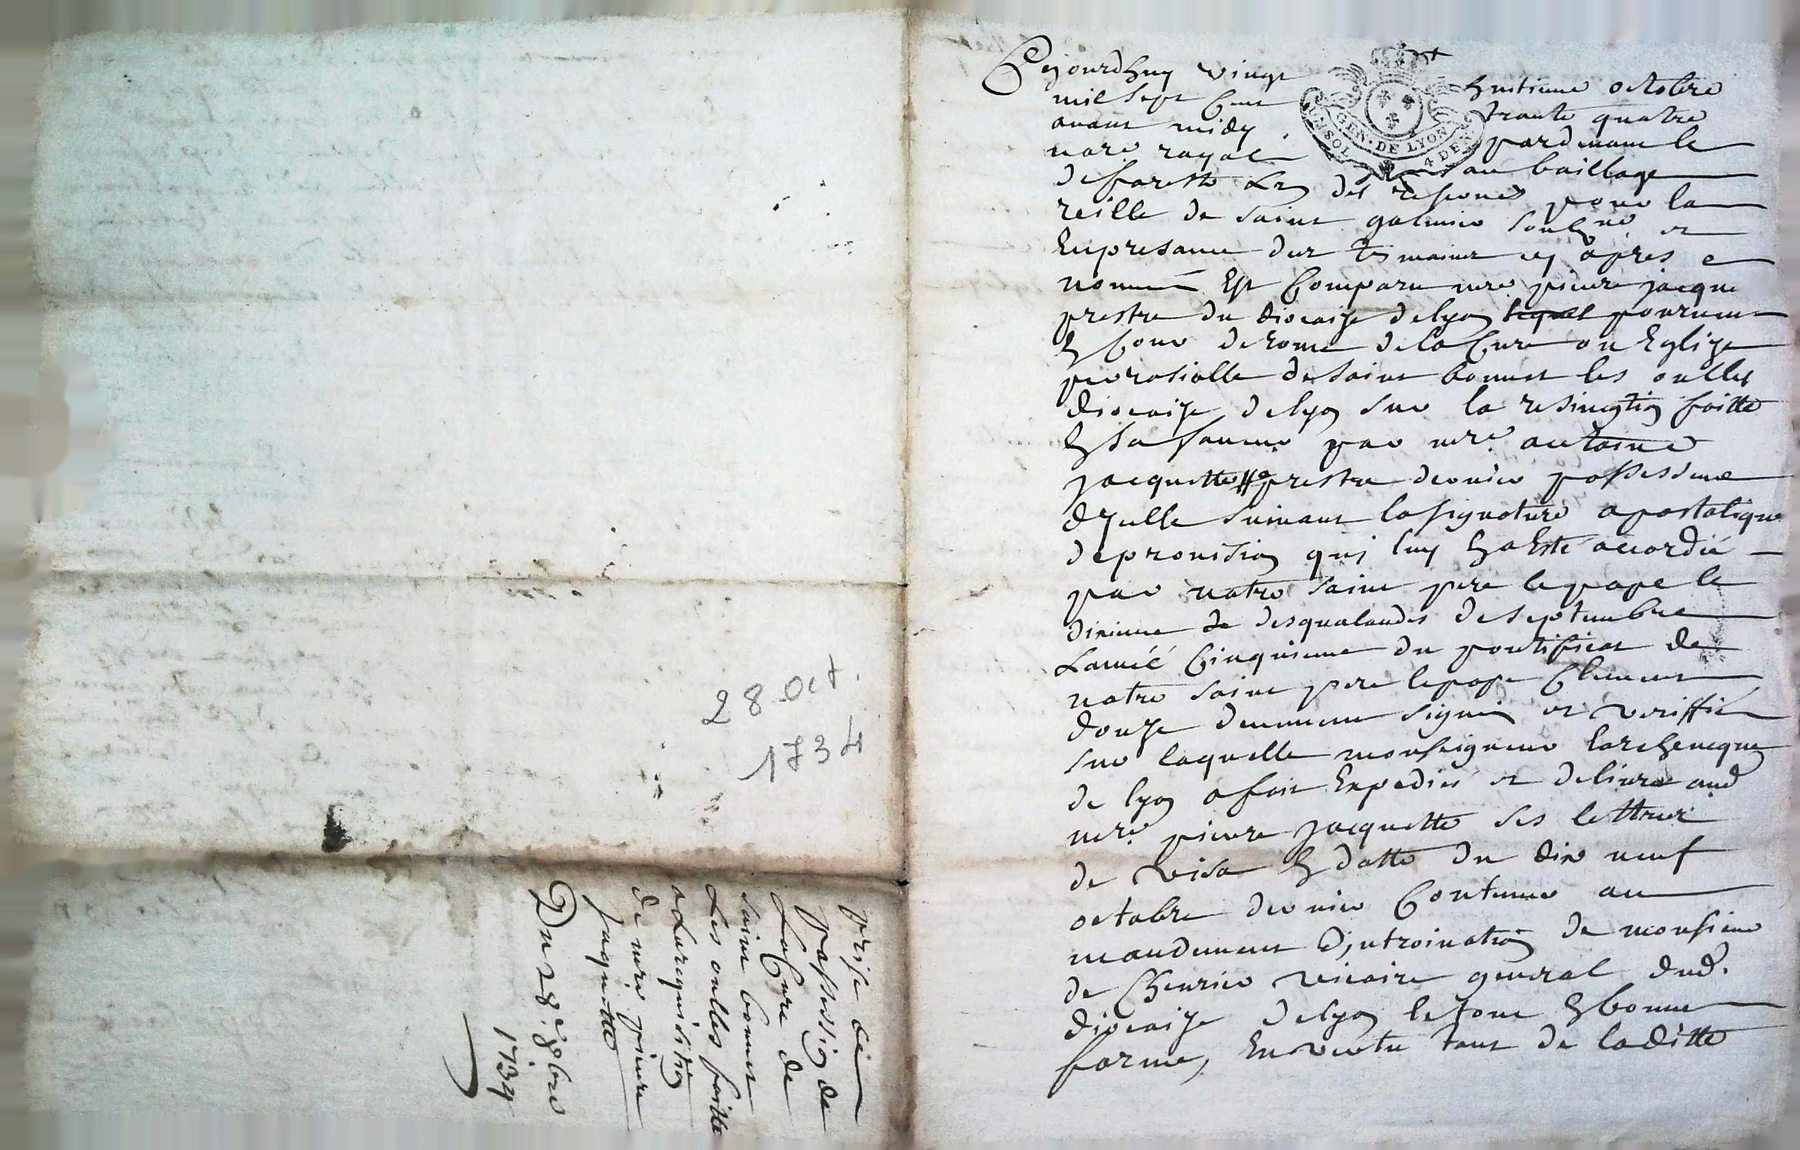 28 Oct.
1734
prise de
possession de
La Cure de
saint bonnet
Les oulles faitte
a La requisition
de mre pierre
jaquette
Du 28e 8bre
1734
GEN. DE LYON
SOL 4 DEN
Cejourdhuy vingt huitieme octobre
mil sept Cent trante quatre
avant midy pardevant le
nore royal au baillage
de forests des reserves pour la
ville de saint galmier soubne et
En presance des tesmoins cy apres
nommés Est Comparu mre pierre jacque
prestre du diocaize de lyon lequel pourveu
En Cour de rome de la Cure ou Eglize
parosialle de saint bonnet les oulles
diocaize de lyon sur la resination faitte
En sa faveur par mre antoine
jacquette prestre dernier possesseur
dycelle suivant la signature apostolique
de provision quj luy En a Esté accordée
par notre saint pere le pape le
dixieme de des qualandes de septembre
L'année Cinquieme du pontificat de
notre saint pere le pape Clement
douze deuement signée et veriffiée
sur laquelle monseigneur l'archeveque
de lyon a fait Expedier et delivrer aud
mre pierre jacquette ses lettres
de visa En datte du dix neuf
octobre dernier Contenant au
mandement d'jntroination de monsieur
de Chevrier vicaire general dud.
diocaize de lyon le tout En bonne
forme, En vertu tant de laditte